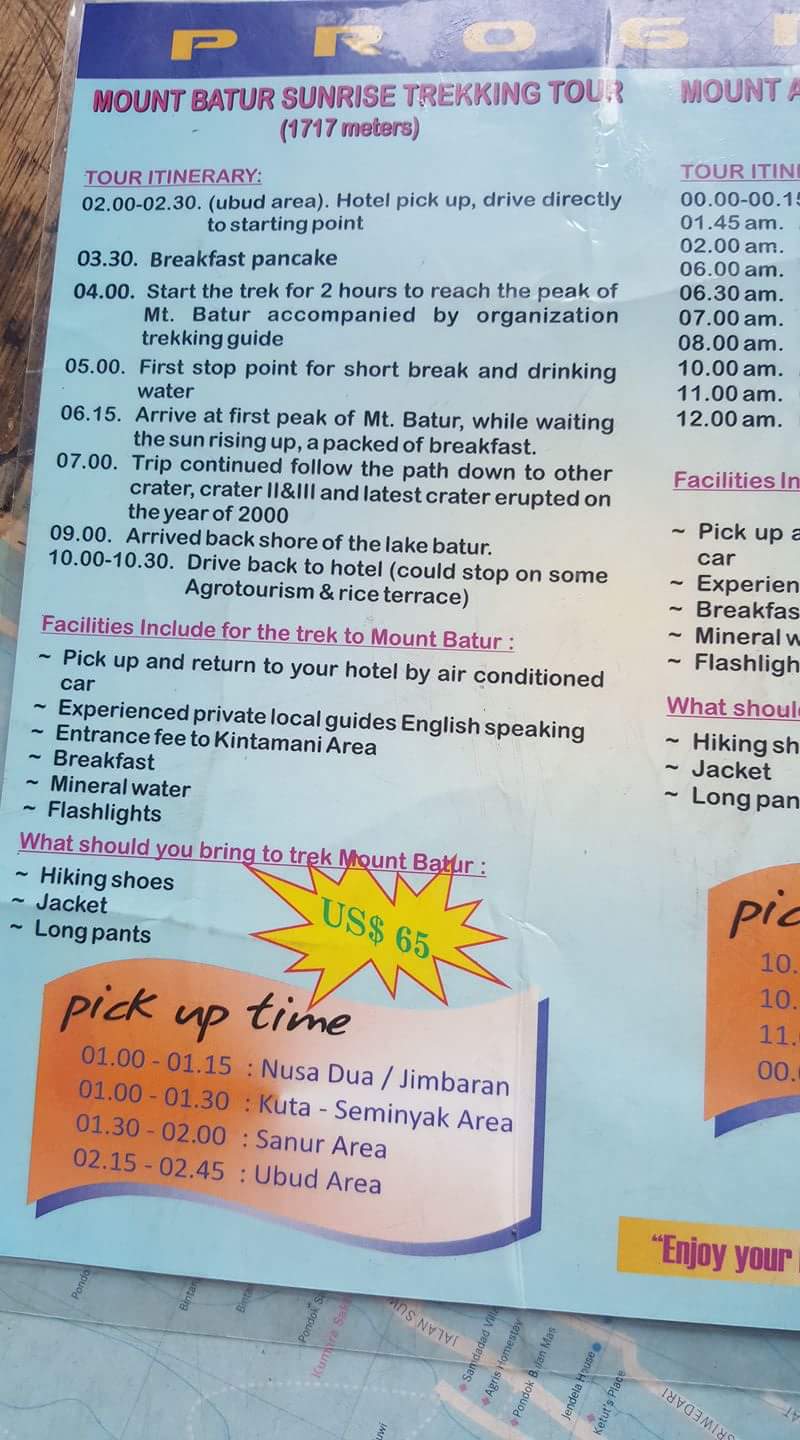 PROG
MOUNT BATUR SUNRISE TREKKING TOUR
(1717 meters)
TOUR ITINERARY:
02.00-02.30. (ubud area). Hotel pick up, drive directly
to starting point
03.30. Breakfast pancake
04.00. Start the trek for 2 hours to reach the peak of
Mt. Batur accompanied by organization
trekking guide
05.00. First stop point for short break and drinking
water
06.15. Arrive at first peak of Mt. Batur, while waiting
the sun rising up, a packed of breakfast.
07.00. Trip continued follow the path down to other
crater, crater II&III and latest crater erupted on
the year of 2000
09.00. Arrived back shore of the lake batur.
10.00-10.30. Drive back to hotel (could stop on some
Agrotourism & rice terrace)
Facilities Include for the trek to Mount Batur :
~ Pick up and return to your hotel by air conditioned
car
~ Experienced private local guides English speaking
~ Entrance fee to Kintamani Area
~ Breakfast
~ Mineral water
~ Flashlights
What should you bring to trek Mount Batur :
~ Hiking shoes
~ Jacket
~ Long pants
US$ 65
pick up time
01.00 - 01.15 : Nusa Dua / Jimbaran
01.00 - 01.30 : Kuta - Seminyak Area
01.30 - 02.00 : Sanur Area
02.15 - 02.45 : Ubud Area
MOUNT A
TOUR ITIN
00.00-00.15
01.45 am.
02.00 am.
06.00 am.
06.30 am.
07.00 am.
08.00 am.
10.00 am.
11.00 am.
12.00 am.
Facilities In
~ Pick up a
car
~ Experien
~ Breakfas
~ Mineral w
~ Flashligh
What shoul
~ Hiking sh
~ Jacket
~ Long pan
pic
10.
10.
11.
00.
"Enjoy your
Pondo
Bintan
Pondok
Kumara
JALAN
Samdadad Villa
Agris Homestay
Pondok Bulan Mas
Jendela House
Ketut's Place
SRIWEDARI